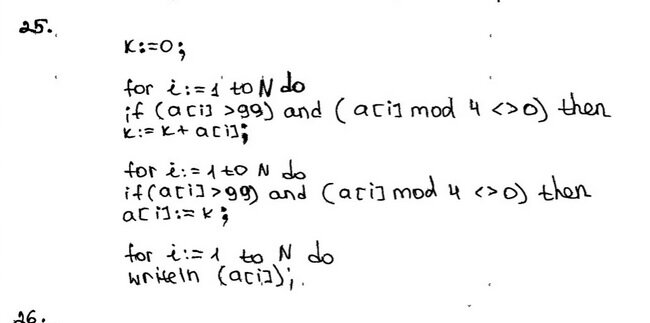 25.
k:=0;
for i:=1 to N do
if (a[i] >99) and (a[i] mod 4 <>0) then
k:= k+ a[i];
for i:=1 to N do
if(a[i]>99) and (a[i] mod 4 <>0) then
a[i]:= k;
for i:=1 to N do
writeln (a[i]);
26.